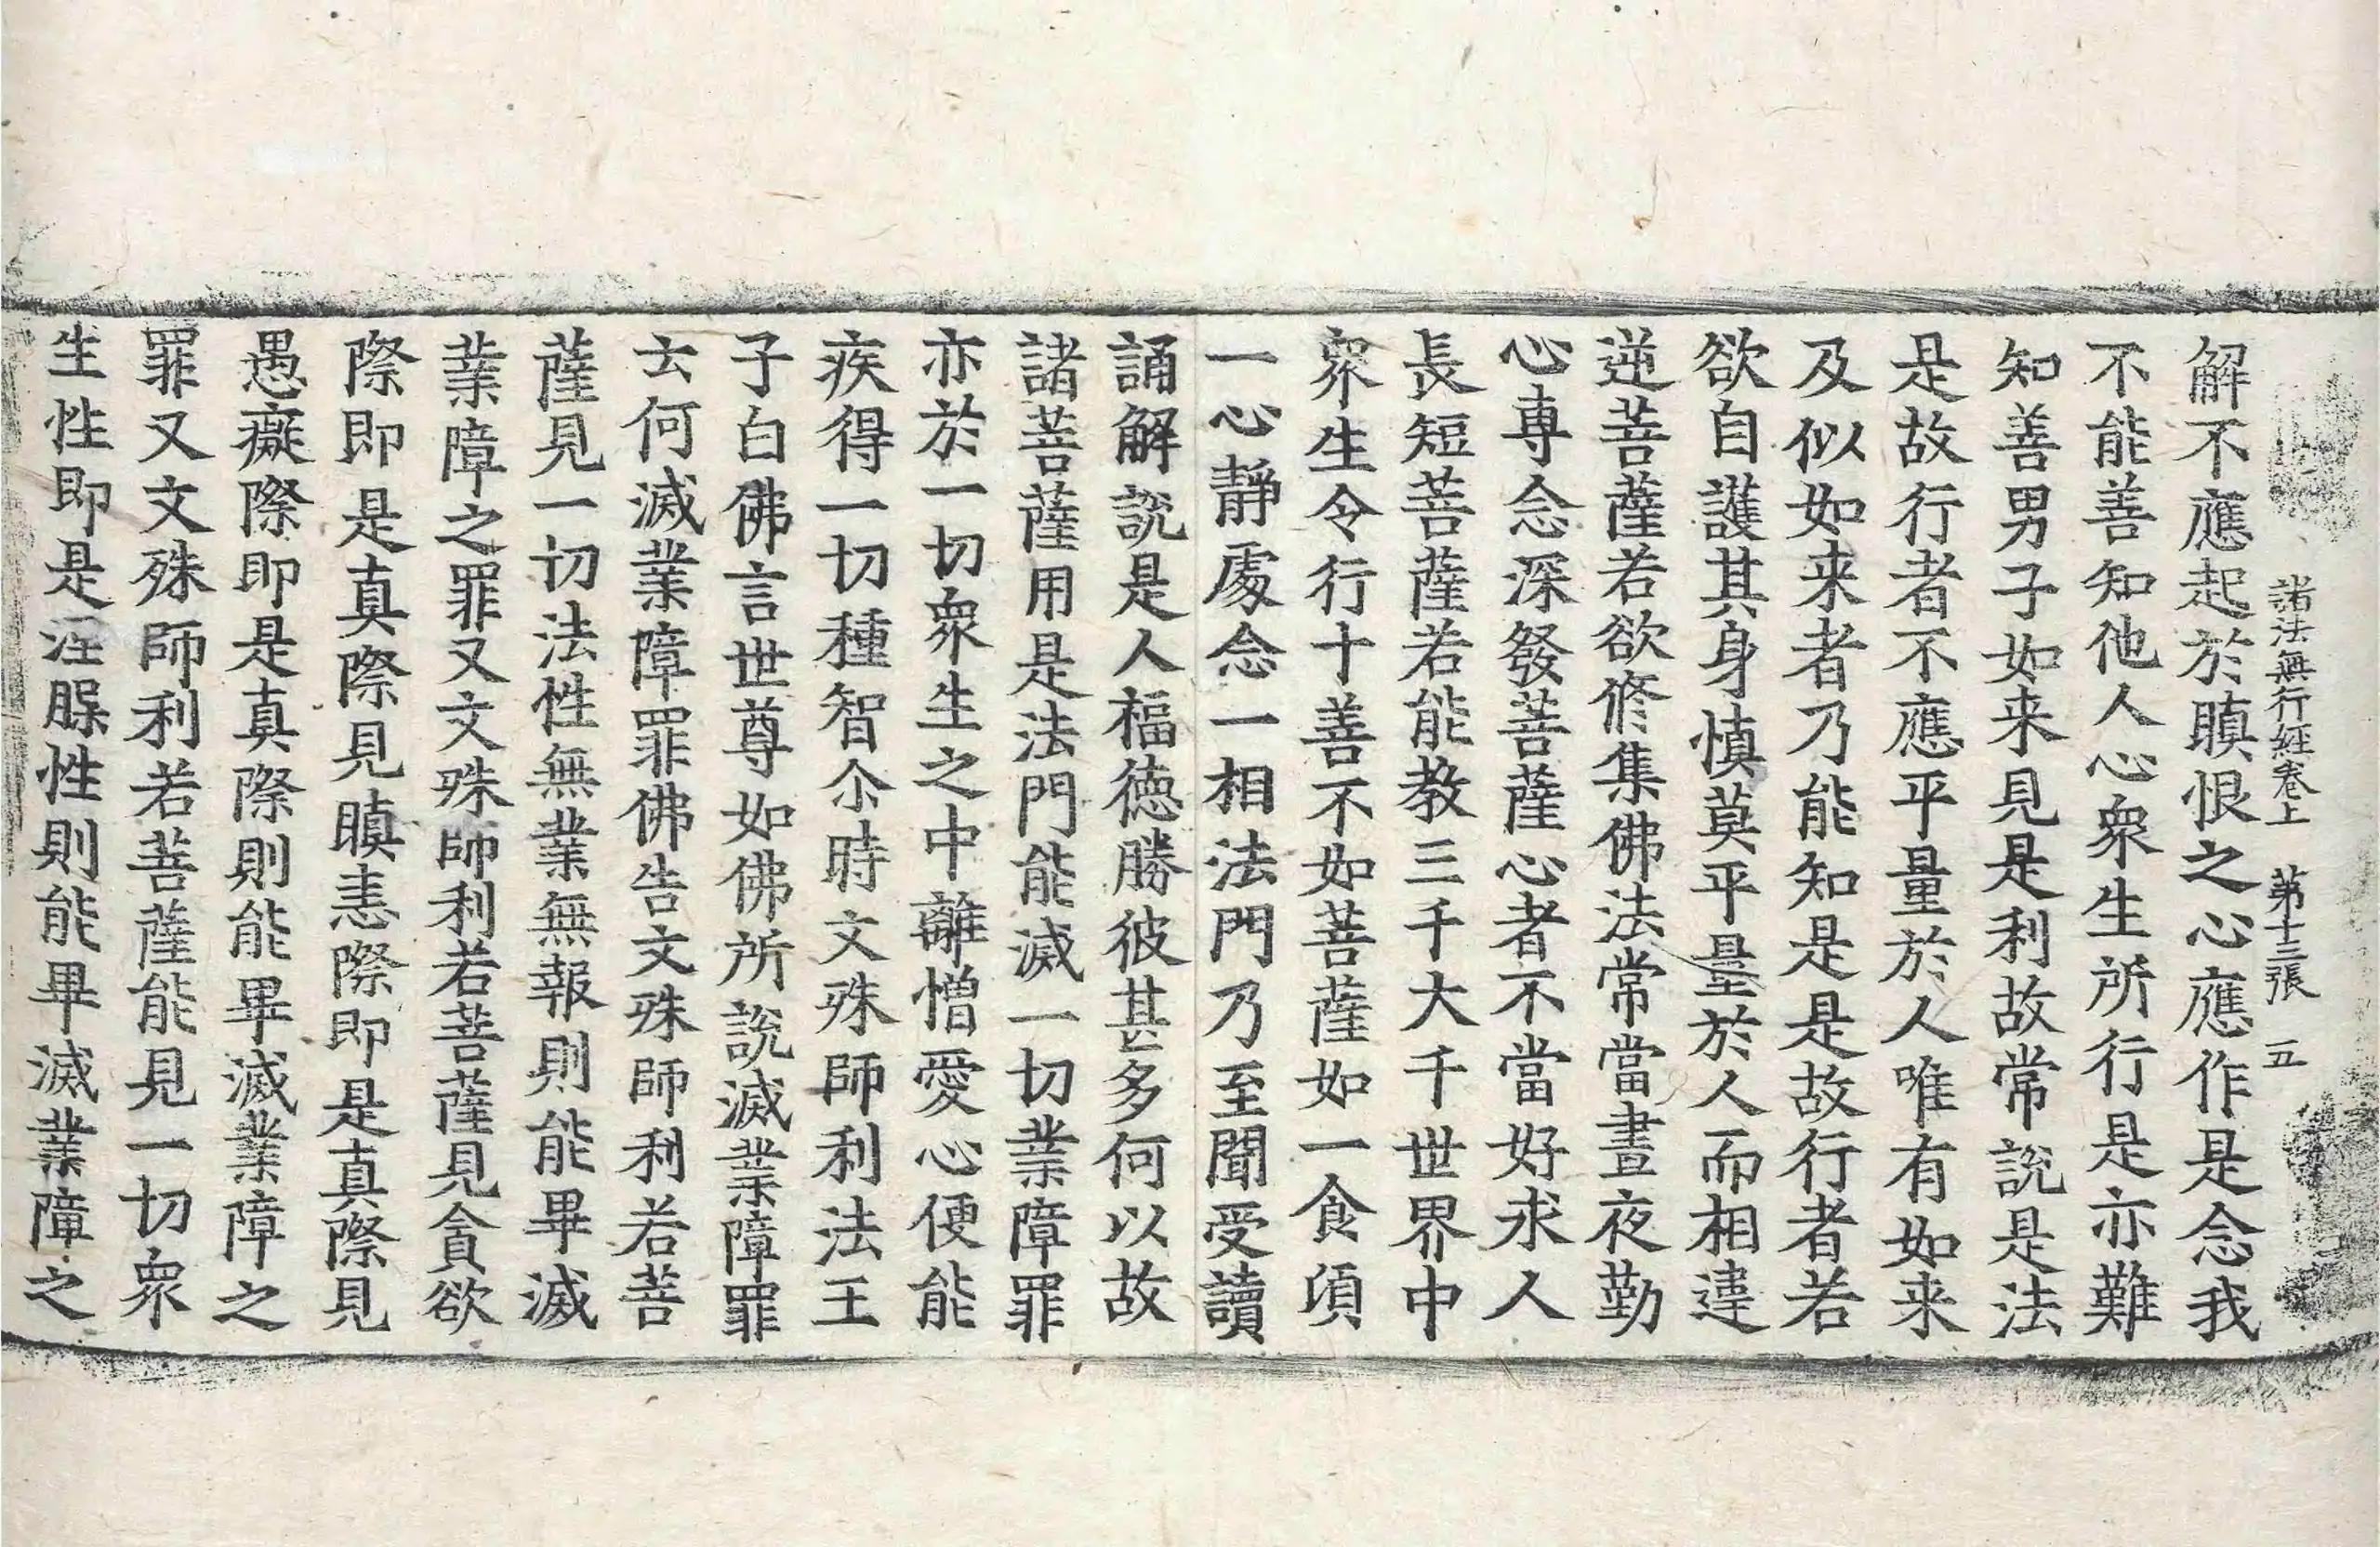 諸法無行經卷上　第十三張　五
解不應起於瞋恨之心應作是念我
不能善知他人心衆生所行是亦難
知善男子如来見是利故常說是法
是故行者不應平量於人唯有如来
及似如来者乃能知是是故行者若
欲自護其身慎莫平量於人而相違
逆菩薩若欲修集佛法常當晝夜勤
心專念深發菩薩心者不當好求人
長短菩薩若能教三千大千世界中
衆生令行十善不如菩薩如一食湏
一心靜處念一相法門乃至聞受讀
誦解說是人福德勝彼甚多何以故
諸菩薩用是法門能滅一切業障罪
亦於一切衆生之中離憎愛心便能
疾得一切種智尒時文殊師利法王
子白佛言世尊如佛所說滅業障罪
云何滅業障罪佛告文殊師利若菩
薩見一切法性無業無報則能畢滅
業障之罪又文殊師利若菩薩見貪欲
際即是真際見瞋恚際即是真際見
愚癡際即是真際則能畢滅業障之
罪又文殊師利若菩薩能見一切衆
生性即是涅膎性則能畢滅業障之